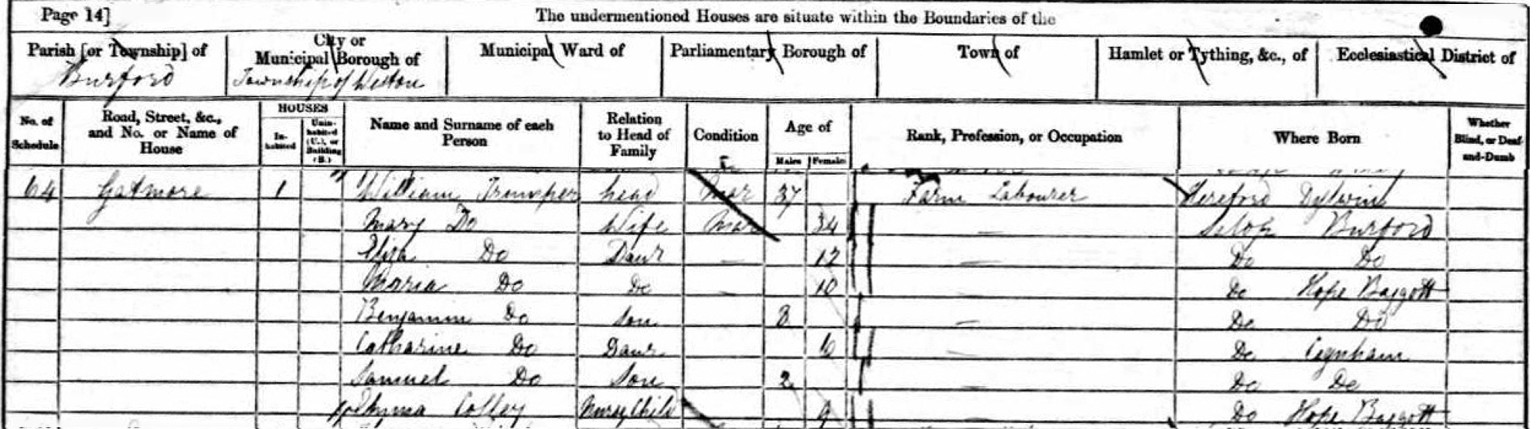 Page 14] The undermentioned Houses are situate within the Boundaries of the
Parish [or Township] of City or Municipal Borough of Municipal Ward of Parliamentary Borough of Town of Hamlet or Tything, &c., of Ecclesiastical District of
Burford Township of Weston
No. of Schedule Road, Street, &c., and No. or Name of House HOUSES Inhabited Uninhabited (U.), or Building (B.) Name and Surname of each Person Relation to Head of Family Condition Age of Males Females Rank, Profession, or Occupation Where Born Whether Blind, or Deaf-and-Dumb
64 Gatmore 1 William head Mar 37 Farm Labourer Hereford Dylwin
Mary Do Wife Mar 34 — Salop Burford
Eliza Do Daur — 12 — Do Do
Maria Do Do — 10 Do Hope Baggott
Benjamin Do Son 8 — Do Do
Catharine Do Daur 6 — Do Cynham
Samuel Do Son 2 — Do Do
Emma Colley Nurse Child 9 — Do Hope Baggott